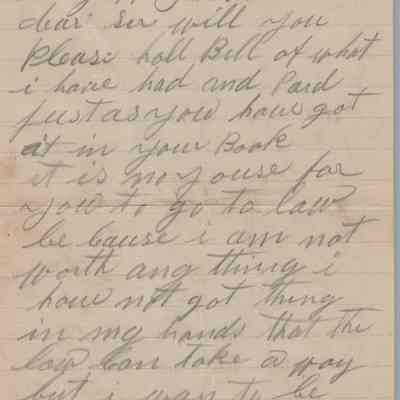 dear ser will you
Please holl Bell of what
i have had and Pard
just as you have got
it in your Book
it is no youse for
you to go to law
be cause i am not
worth ang thing i
have not got thing
in my hands that the
law can take a way
but i wan to be